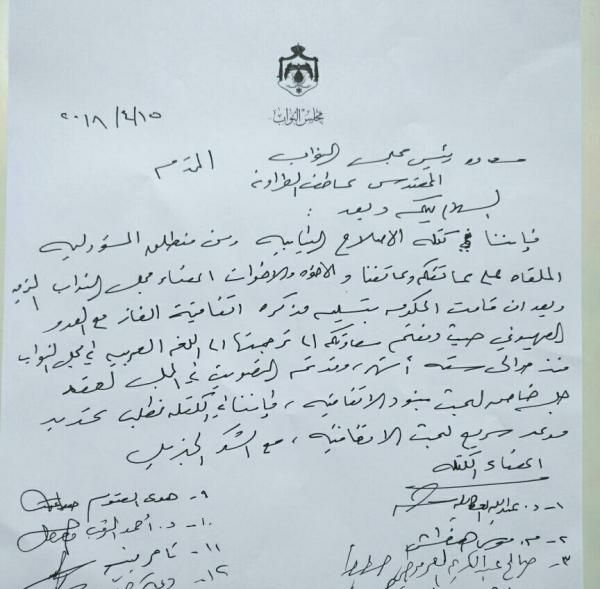 مجلس النواب
٢٠١٨/٤/١٥
سعادة رئيس مجلس النواب
المهندس عاطف الطراونة المحترم
السلام عليكم وبعد :
فإننا في كتلة الاصلاح النيابية ومن منطلق المسؤولية
الملقاه على عاتقكم وعاتقنا و الاخوه والاخوات اعضاء مجلس النواب
وبعد ان قامت الحكومه بتسليم مذكره اتفاقية الغاز مع العدو
الصهيوني حيث دفعتم سعادتكم الى ترجمتها الى اللغه العربيه في مجلس النواب
منذ حوالى سته أشهر، وقد تم التصويت في المجلس لعقد
جلسه خاصه لبحث بنود الاتفاقيه ، فإننا في الكتله نطلب تحديد
موعد سريع لبحث الاتفاقيه ، مع الشكر الجزيل
اعضاء الكتله
١- د. عبدالله العكايله
٢- م. موسى هنطش
٣- صالح عبدالكريم العرموطي
٩- هدى العتوم
١٠- د. أحمد الرقب
١١- تامر بينو
١٢-